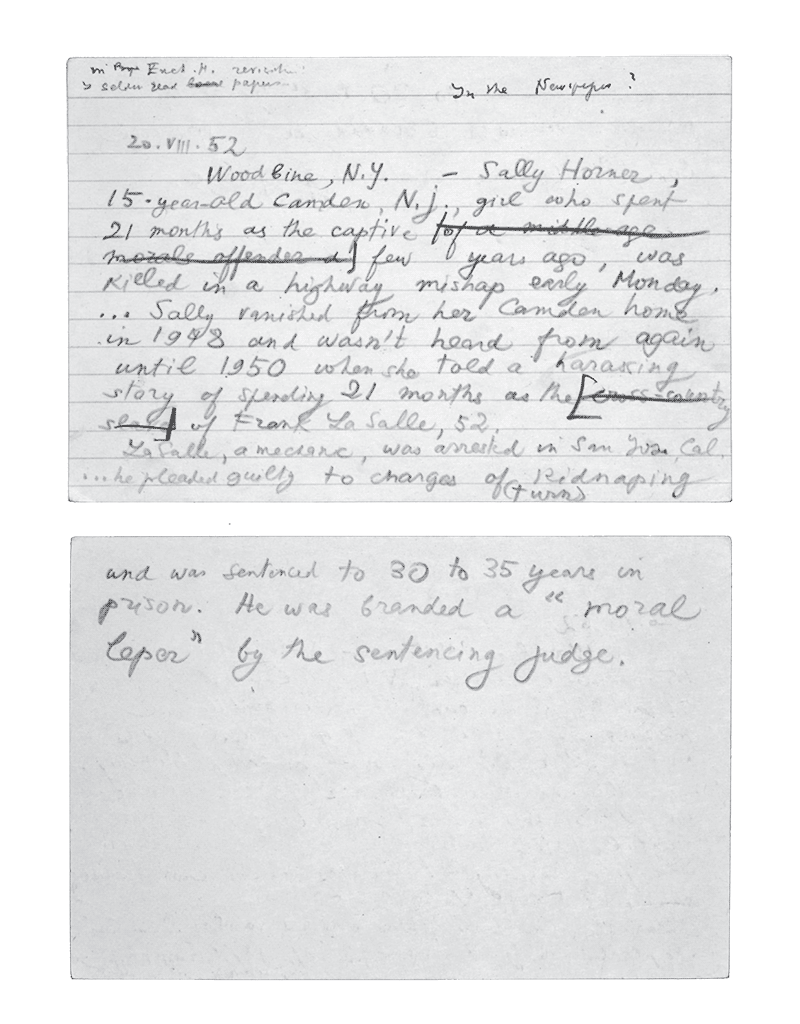 in
Enct. H.
papers
In the Newspaper?
20.VIII.52
Woodbine, N.Y. – Sally Horner,
15-year-old Camden, N.J., girl who spent
21 months as the captive [of a middle-age
morals offender a] few years ago, was
killed in a highway mishap early Monday.
... Sally vanished from her Camden home
in 1948 and wasn't heard from again
until 1950 when she told a harassing
story of spending 21 months as the [cross-country
slave] of Frank La Salle, 52.
LaSalle, a mechanic, was arrested in San Jose, Cal.
...he pleaded guilty to charges of kidnaping
(turn)
and was sentenced to 30 to 35 years in
prison. He was branded a "moral
leper" by the sentencing judge.